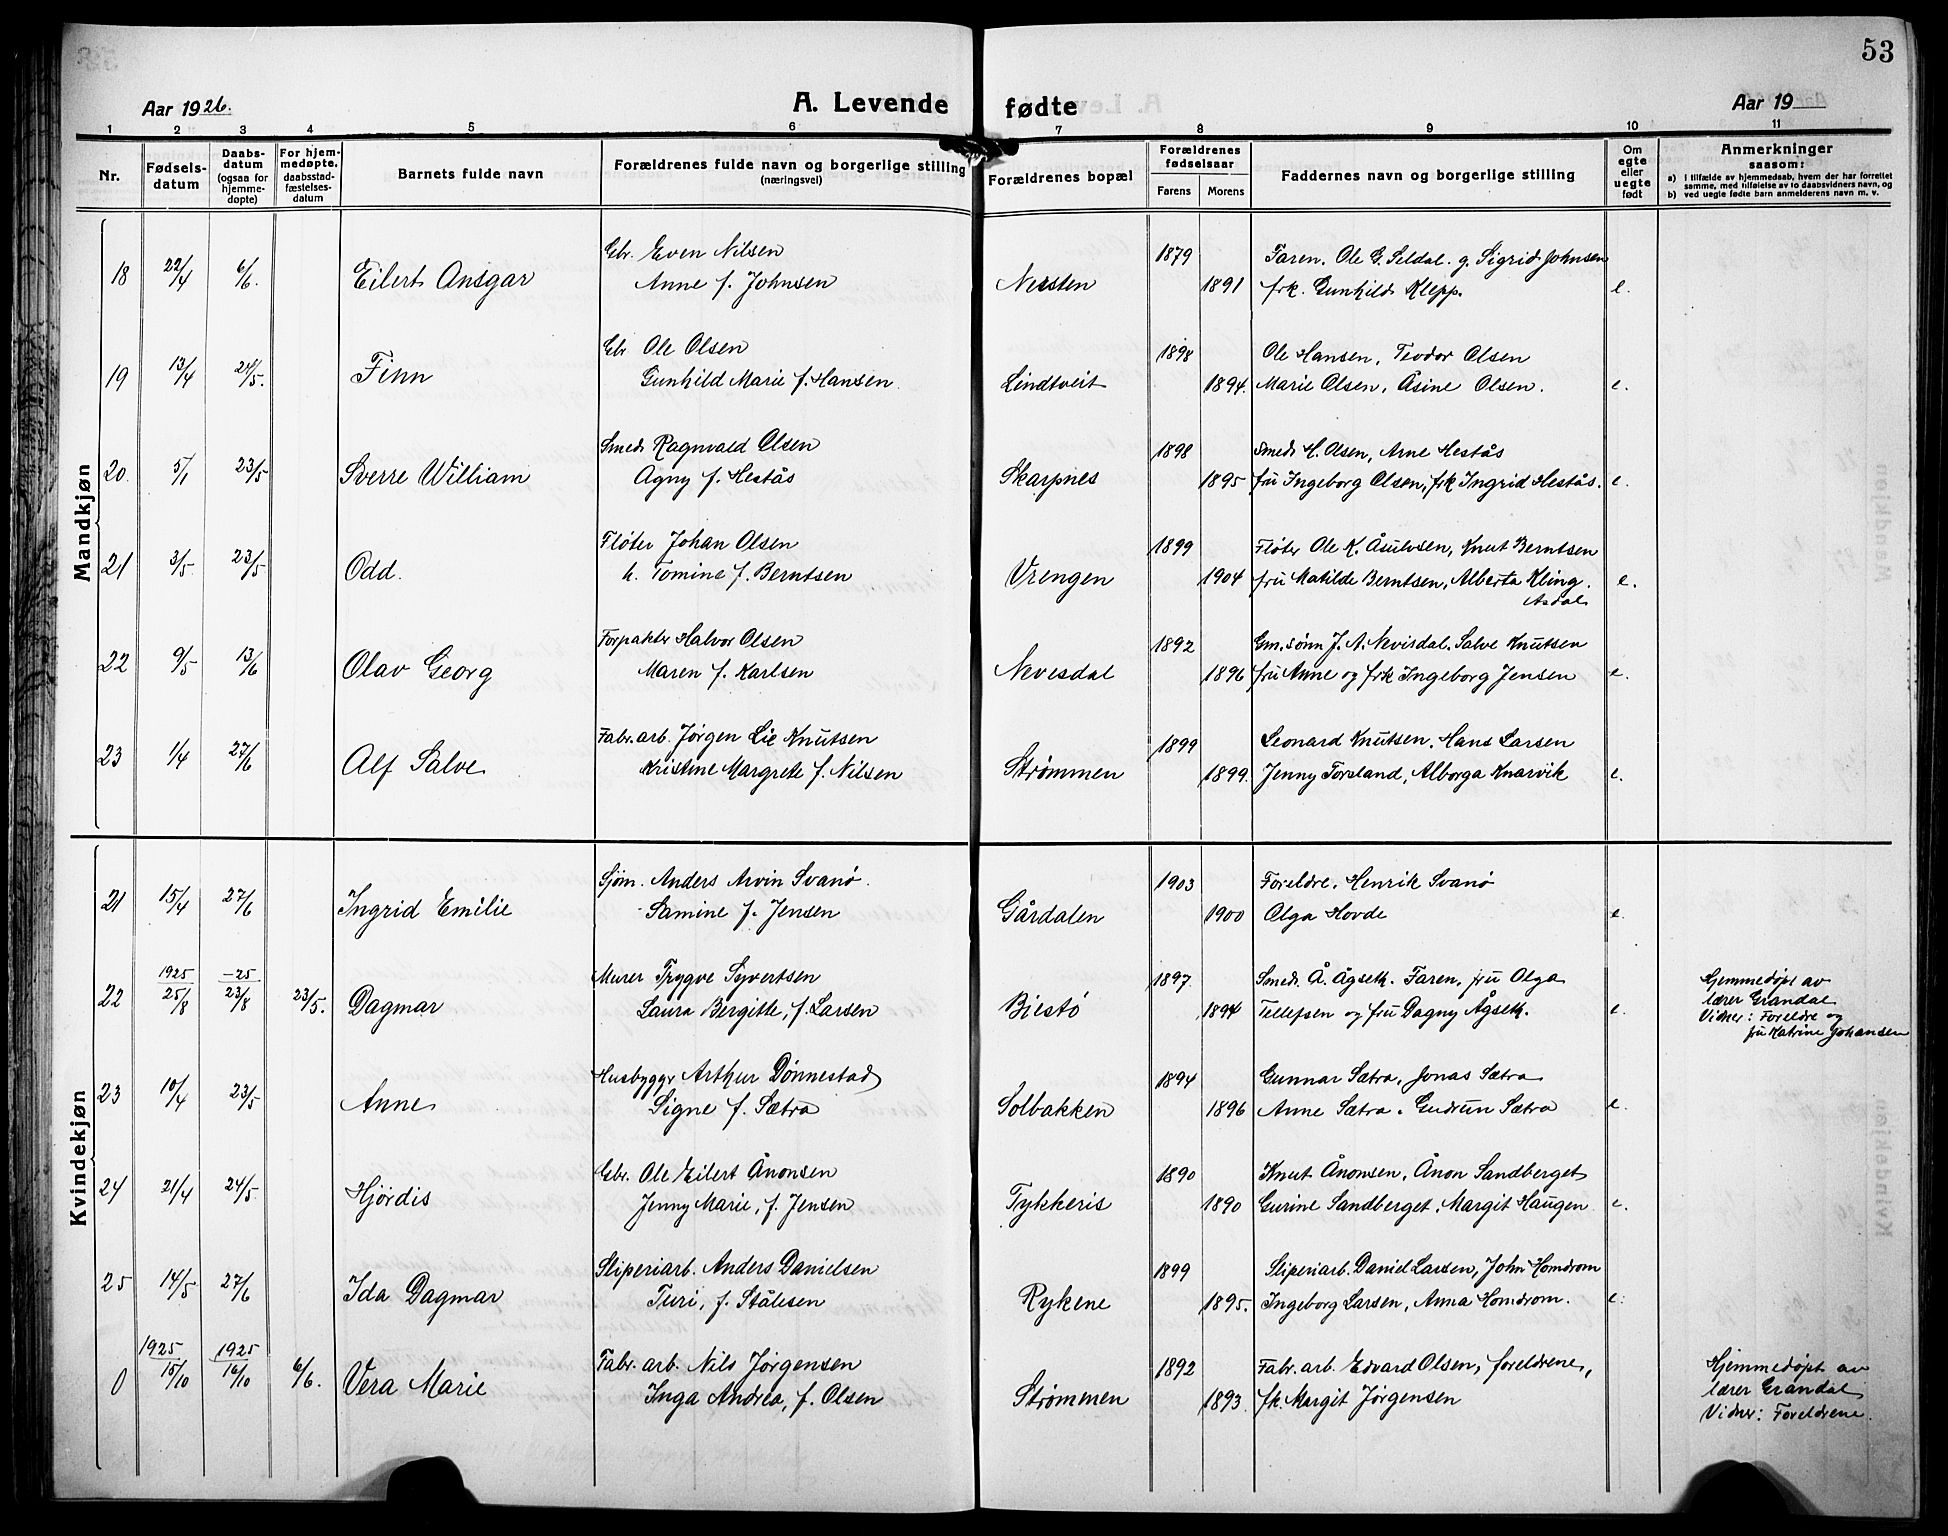 53
Aar 1926.
A. Levende fødte
Aar 19
1 2 3 4 5 6 7 8 9 10 11
Nr.
Fødsels-
datum
Daabs-
datum
(ogsaa for
hjemme-
døpte)
For hjem-
medøpte,
daabsstad-
fæstelses-
datum
Barnets fulde navn
Forældrenes fulde navn og borgerlige stilling
(næringsvei)
Forældrenes bopæl
Forældrenes
fødselsaar
Farens Morens
Faddernes navn og borgerlige stilling
Om
egte
eller
uegte
født
Anmerkninger
saasom:
a) i tilfælde av hjemmedaab, hvem der har forrettet
samme, med tilføielse av to daabsvidners navn, og
b) ved uegte fødte barn anmelderens navn m. v.
Mandkjøn
18 22/4 6/6. Eilert Ansgar
Gbr. Even Nilsen
Anne f. Johnsen
Nersten 1879 1891
Faren. Ole G. Seldal. g. Sigrid Johnsen
frk. Gunhild Klepp. e.
19 13/4 24/5. Finn
Gbr Ole Olsen
Gunhild Marie f. Hansen.
Lindtveit 1898 1894.
Ole Hansen, Teodor Olsen
Marie Olsen, Åsine Olsen. e.
20. 5/1 23/5 Sverre William
Smed Ragnvald Olsen
Agny f. Hestås
Skarpnes 1898 1895
Smed H. Olsen, Arne Hestås
fru Ingeborg Olsen, frk Ingrid Hestås. e.
21 3/5. 23/5 Odd.
Fløter Johan Olsen
h. Tomine f. Berntsen
Vrengen 1899 1904
Fløter Ole K. Åsulvsen, Knut Berntsen
fru Matilde Berntsen, Alberta Kling.
Asdal e.
22 9/5 13/6 Olav Georg
Forpakter Halvor Olsen
Maren f. Karlsen
Nevesdal 1892 1896
Gm. sønn J. A. Nevisdal, Salve Knutsen
fru Anne og frk Ingeborg Jensen e.
23 1/4 27/6 Alf Salve
Fabr. arb. Jørgen Lie Knutsen
Kristine Margrete f. Nilsen
Strømmen 1899 1899.
Leonard Knutsen, Hans Larsen
Jenny Torsland, Alborga Knarvik e.
Kvindekjøn
21 15/4 27/6 Ingrid Emilie
Sjøm. Anders Arvin Svanø.
Samine f. Jensen
Gårdalen 1903 1900
Foreldre, Henrik Svanø
Olga Hovde e.
22 1925 25/8 -25 23/8 23/5. Dagmar
Murer Trygve Syvertsen
Laura Bergitte, f. Larsen
Biestø 1897 1894
Smed. Å. Ågseth. Faren, fru Olga
Tellefsen og fru Dagny Ågseth. e.
Hjemmedøpt av
lærer Grandal
Vidner: Foreldre og
fru Katrine Johansen
23 10/4 23/5 Anne
Husbyggr Arthur Dønnestad
Signe f. Sætra
Solbakken 1894 1896
Gunnar Sætra, Jonas Sætra
Anne Sætra. Gudrun Sætra e.
24 21/4 24/5. Hjørdis
Gbr. Ole Eilert Ånonsen
Jenny Marie, f. Jensen
Tykkeris 1890 1890
Knut Ånonsen, Ånon Sandberget
Gurine Sandberget, Margit Haugen e.
25 14/5 27/6 Ida Dagmar
Sliperiarb. Anders Danielsen
Turi, f. Stålesen
Rykene 1899 1895.
Sliperiarb. Daniel Larsen, John Homdrom
Ingeborg Larsen, Anna Homdrom. e.
0 1925 15/10 1925 16/10 6/6. Vera Marie
Fabr. arb. Nils Jørgensen
Inga Andrea, f. Olsen
Strømmen 1892 1893.
Fabr. arb. Edvard Olsen, foreldrene,
fk. Margit Jørgensen
Hjemmedøpt av
lærer Grandal
Vidner: Foreldrene.